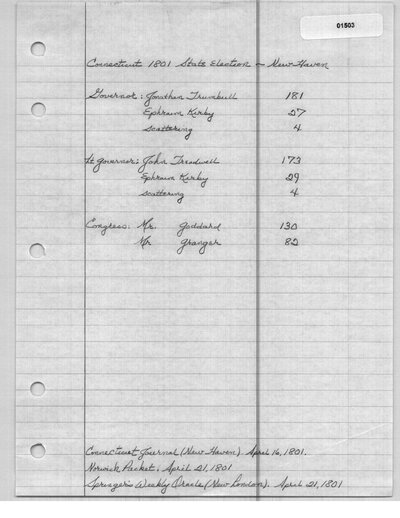 01503
Connecticut 1801 State Election - New Haven
Governor: Jonathan Trumbull 181
Ephraim Kirby 27
Scattering 4
Lt Governor: John Treadwell 173
Ephraim Kirby 29
Scattering 4
Congress: Mr. Goddard 130
Mr Granger 82
Connecticut Journal (New Haven). April 16, 1801.
Norwich Packet. April 21, 1801
Springer's Weekly Oracle (New London). April 21, 1801